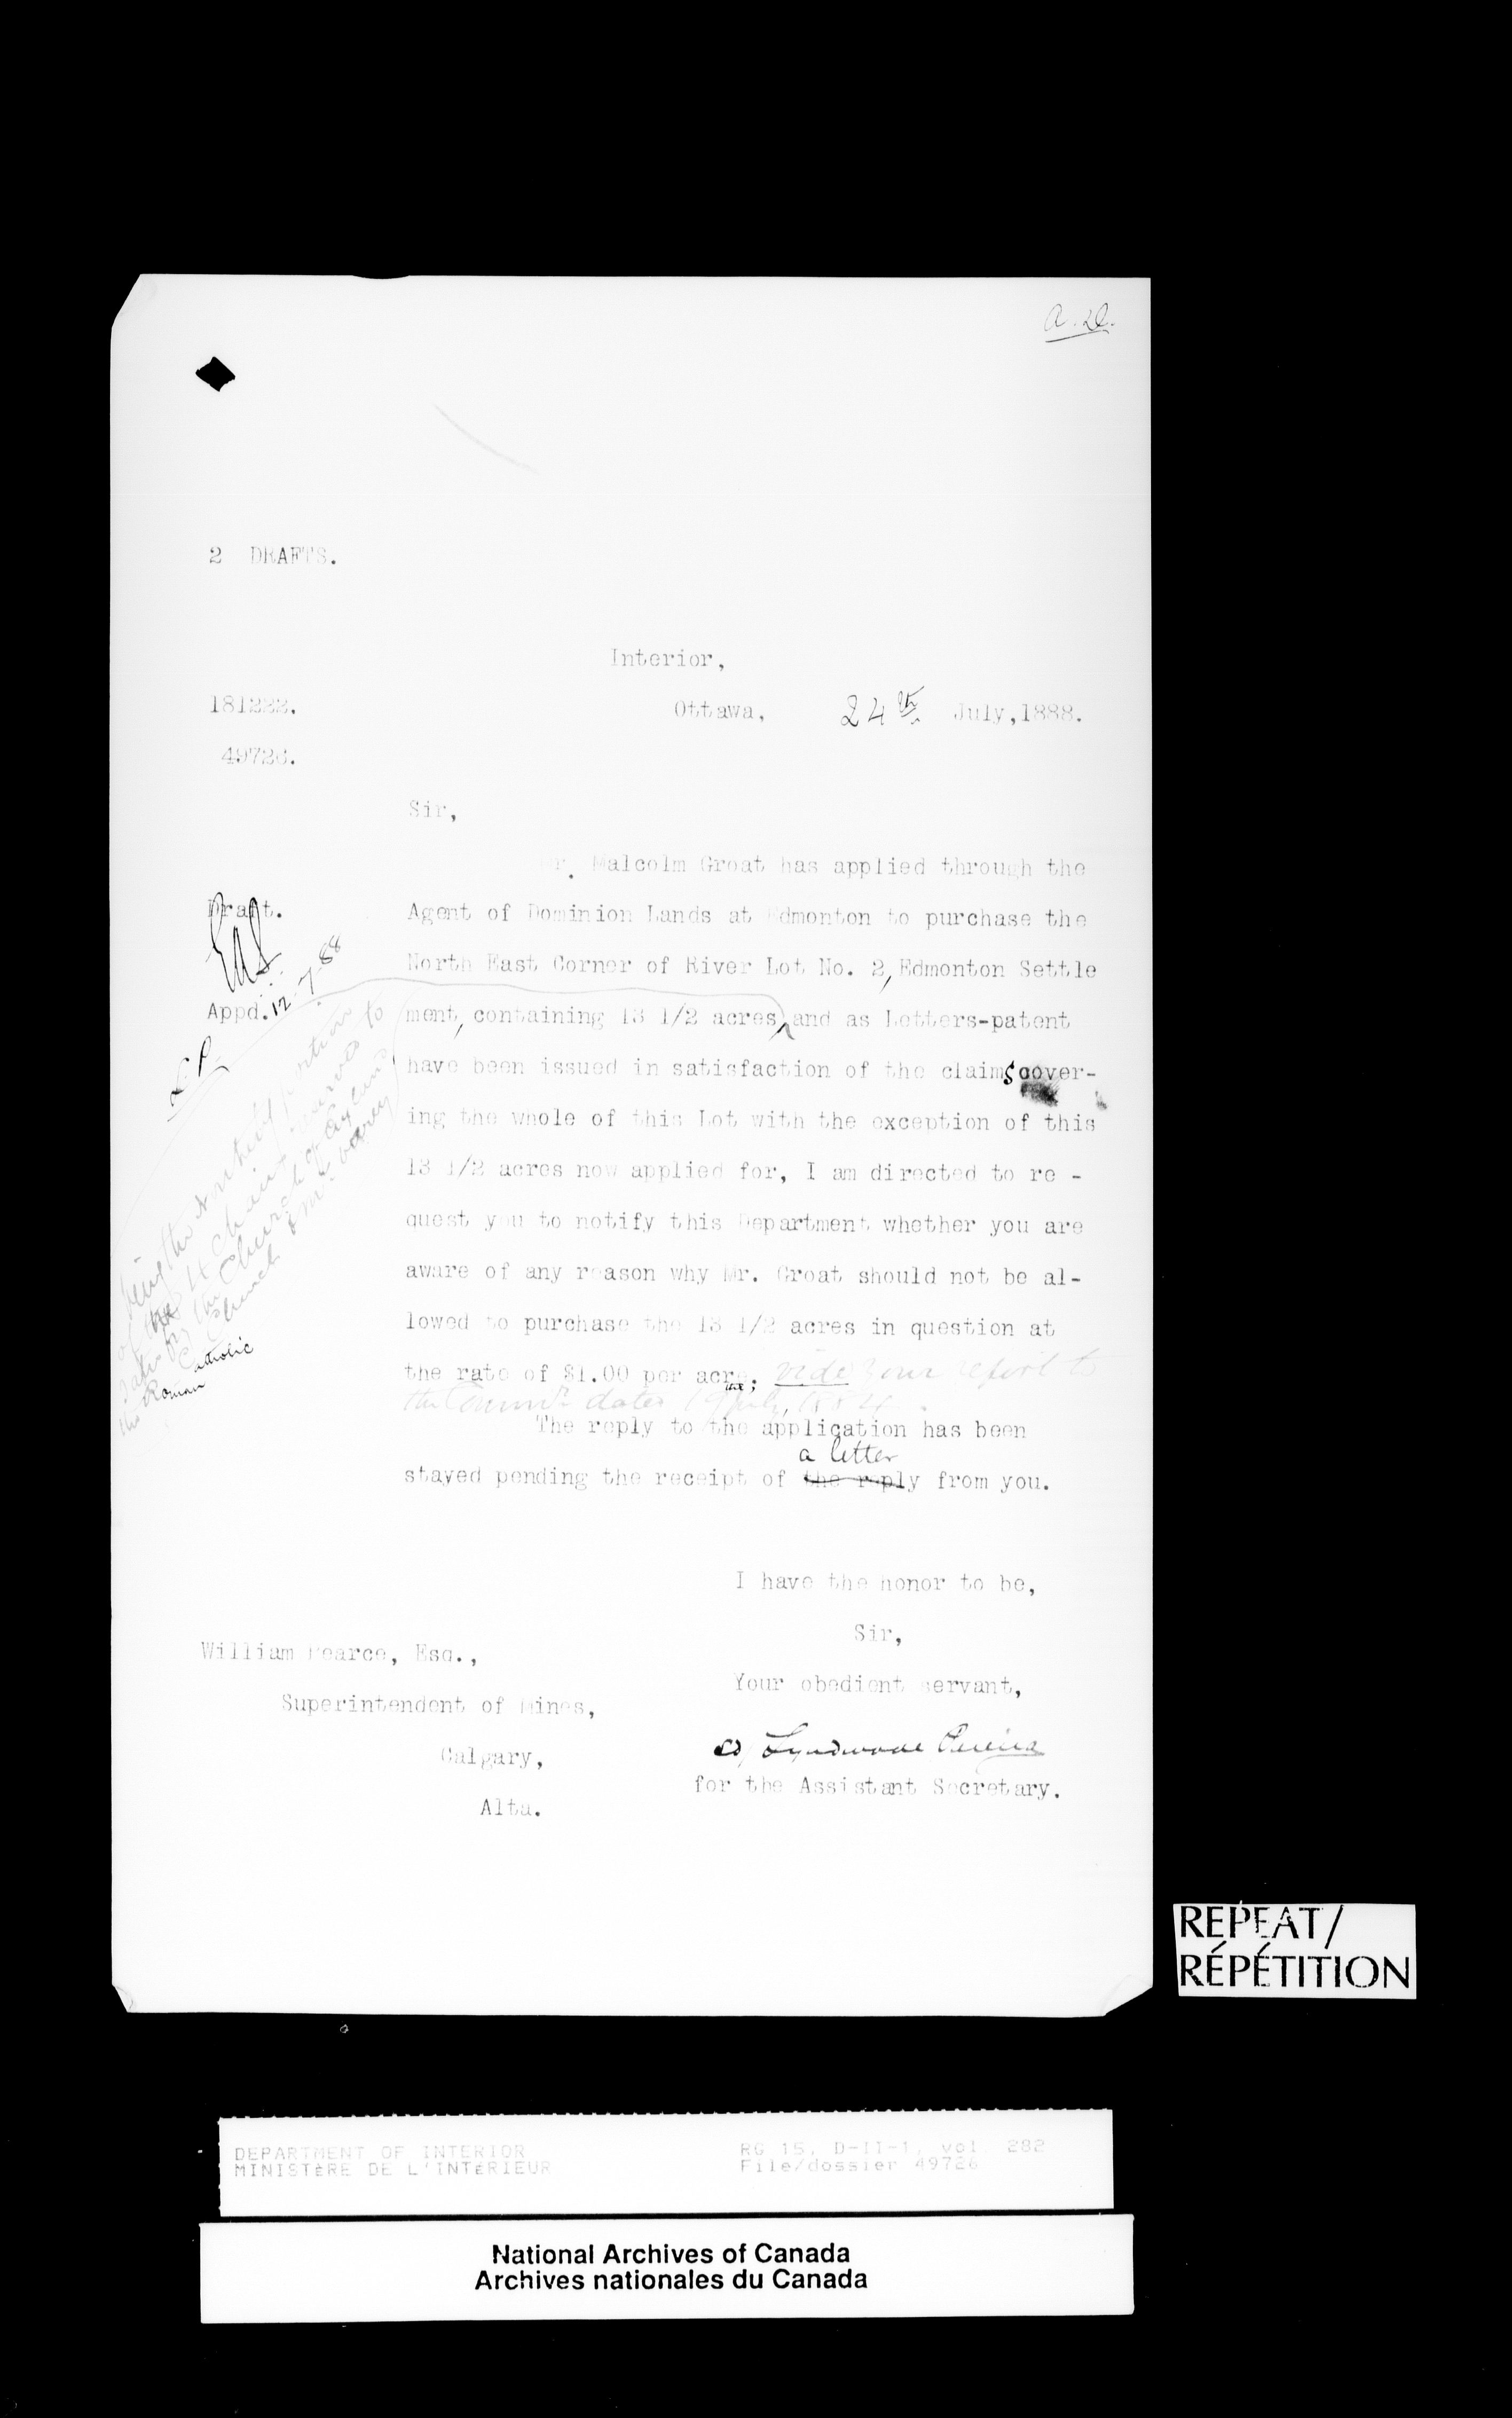 2 DRAFTS.
Interior,
181222.
Ottawa, 24th July, 1888.
49726.
Sir,
Mr. Malcolm Groat has applied through the
Draft.
Agent of Dominion Lands at Edmonton to purchase the
North East Corner of River Lot No. 2, Edmonton Settle
Appd. 12-7-88
ment, containing 13 1/2 acres, and as Letters-patent
L.P.
have been issued in satisfaction of the claims cover-
ing the whole of this Lot with the exception of this
13 1/2 acres now applied for, I am directed to re -
quest you to notify this Department whether you are
aware of any reason why Mr. Groat should not be al-
lowed to purchase the 13 1/2 acres in question at
the rate of $1.00 per acre; vide your report to
the dated 19 July, 1884.
The reply to the application has been
a letter
stayed pending the receipt of the reply from you.
being the portion
of the 4 chains to
by the Church of England
Church & Mr.
the Roman Catholic
I have the honor to be,
Sir,
Your obedient servant,
Lyndwode Pereira
for the Assistant Secretary.
William Pearce, Esq.,
Superintendent of Mines,
Calgary,
Alta.
REPEAT/
RÉPÉTITION
DEPARTMENT OF INTERIOR
MINISTÈRE DE L'INTÉRIEUR
RG 15, D-II-1, vol 282
File/dossier 49726
National Archives of Canada
Archives nationales du Canada